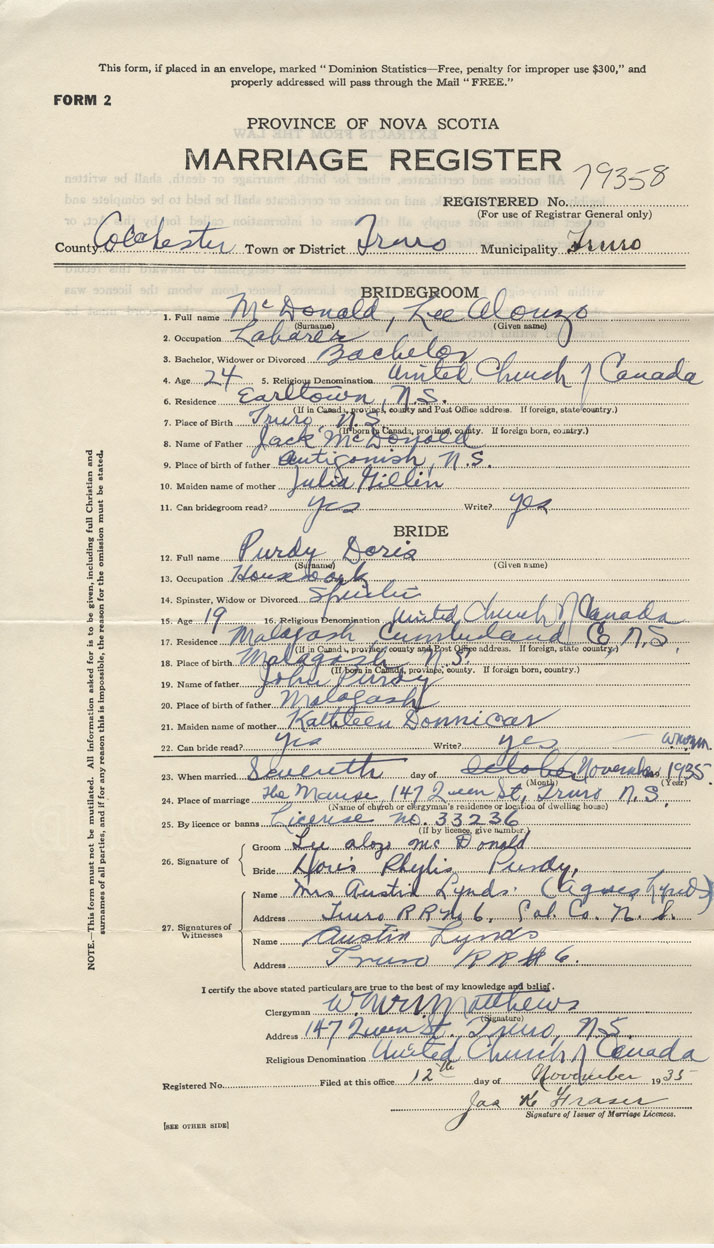 This form, if placed in an envelope, marked "Dominion Statistics—Free, penalty for improper use $300," and
properly addressed will pass through the Mail "FREE."
FORM 2
PROVINCE OF NOVA SCOTIA
MARRIAGE REGISTER
79358
REGISTERED No.
(For use of Registrar General only)
County Colchester Town or District Truro Municipality Truro
BRIDEGROOM
1. Full name McDonald, Lee Alonzo
(Surname) (Given name)
2. Occupation Laborer
3. Bachelor, Widower or Divorced Bachelor
4. Age 24 5. Religious Denomination United Church of Canada
6. Residence Earltown, N.S.
(If in Canada, province, county and Post Office address. If foreign, state country.)
7. Place of Birth Truro, N.S.
(If born in Canada, province, county. If foreign born, country.)
8. Name of Father Jack McDonald
9. Place of birth of father Antigonish, N.S.
10. Maiden name of mother Julia Gillin
11. Can bridegroom read? yes Write? yes
BRIDE
12. Full name Purdy Doris
(Surname) (Given name)
13. Occupation Housework
14. Spinster, Widow or Divorced Spinster
15. Age 19 16. Religious Denomination United Church of Canada
17. Residence Malagash Cumberland Co N.S.
(If in Canada, province, county and Post Office address. If foreign, state country.)
18. Place of birth Malagash N.S.
(If born in Canada, province, county. If foreign born, country.)
19. Name of father John Purdy
20. Place of birth of father Malagash
21. Maiden name of mother Kathleen
22. Can bride read? Yes Write? yes
W.M.M.
23. When married Seventh day of October November 1935.
(Month) (Year)
24. Place of marriage The Manse, 147 Queen St, Truro N.S.
(Name of church or clergyman's residence or location of dwelling house)
25. By licence or banns License no. 33236
(If by licence, give number.)
26. Signature of
Groom Lee alozo McDonald
Bride Doris Phylis Purdy,
27. Signatures of Witnesses
Name Mrs Austin Lynds. (Agnes Lynds)
Address Truro R R No 6, Col. Co. N. S.
Name Austin Lynds
Address Truro RR # 6.
I certify the above stated particulars are true to the best of my knowledge and belief.
Clergyman Matthews
(Signature)
Address 147 Queen St. Truro, N.S.
Religious Denomination United Church of Canada
Registered No. Filed at this office 12th day of November 1935
Jas K Fraser
Signature of Issuer of Marriage Licences.
[SEE OTHER SIDE]
NOTE.—This form must not be mutilated. All information asked for is to be given, including full Christian and
surnames of all parties, and if for any reason this is impossible, the reason for the omission must be stated.